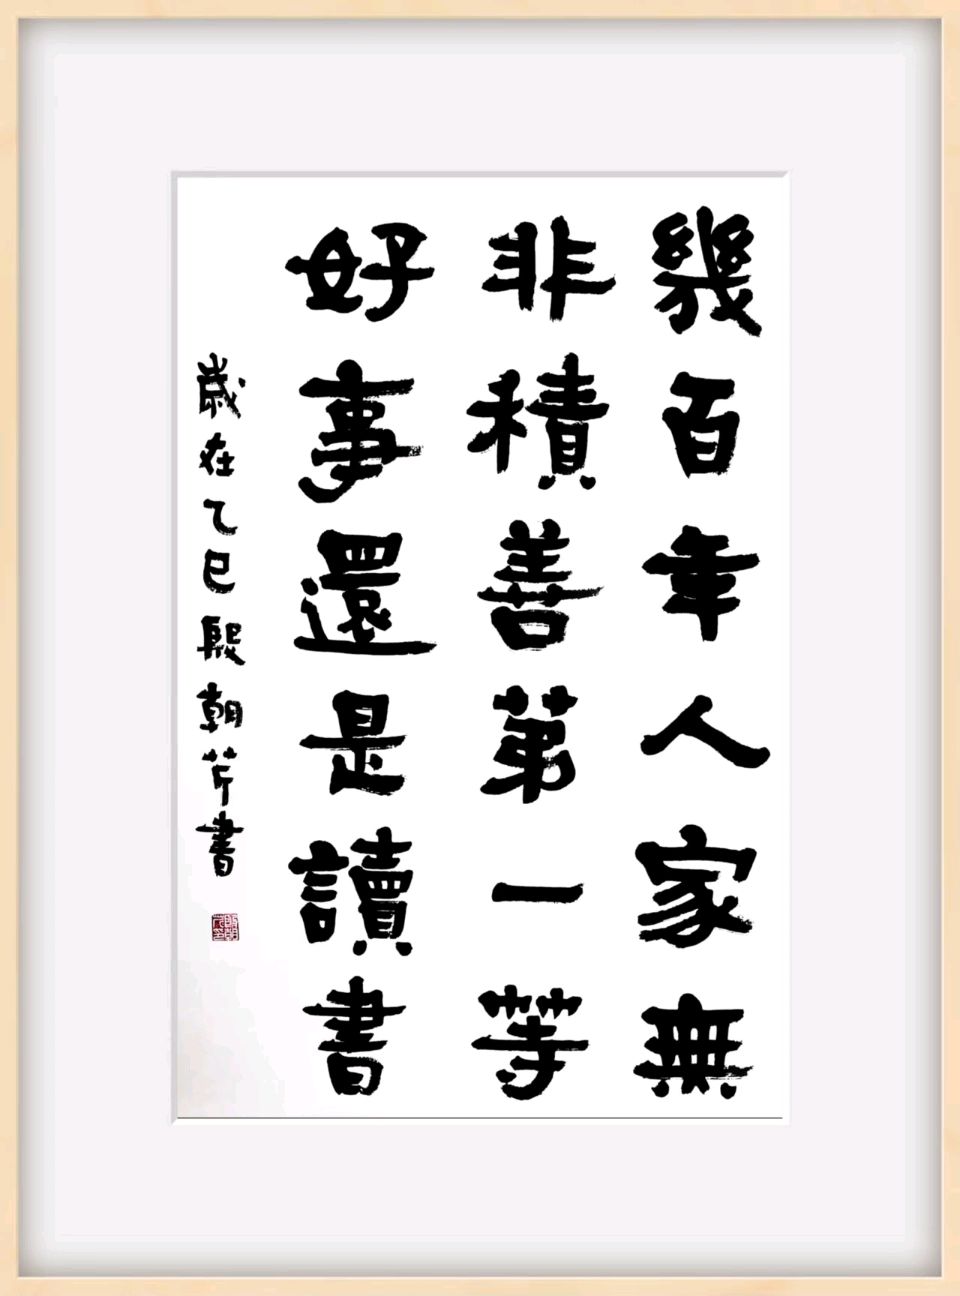 幾百年人家無
非積善第一等
好事還是讀書
歲在乙巳殿朝芹書